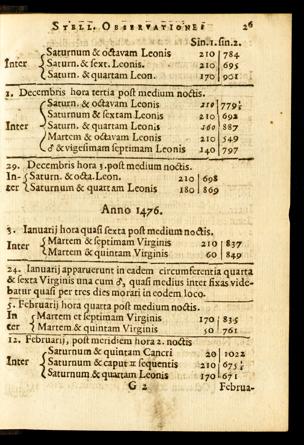 STELL. OBSERVATIONES 26
Sin.1. sin.2.
Saturnum & octavam Leonis 210 784
Inter Saturn. & sext. Leonis. 210 695
Saturn. & quartam Leon. 170 901
1. Decembris hora tertia post medium noctis.
Saturn. & octavam Leonis 210 779½
Saturnum & sextam Leonis 210 692
Inter Saturn. & quartam Leonis 260 887
Martem & octavam Leonis 210 549
♂ & vigesimam septimam Leonis 140 797
29. Decembris hora 5. post medium noctis.
In- Saturn. & octa. Leon. 210 698
ter Saturnum & quartam Leonis 180 869
Anno 1476.
3. Ianuarij hora quasi sexta post medium noctis.
Inter Martem & septimam Virginis 210 837
Martem & quintam Virginis 60 849
24. Ianuarij apparuerunt in eadem circumferentia quarta
& sexta Virginis una cum ♂, quasi medius inter fixas vide-
batur quasi per tres dies morari in eodem loco.
5. Februarij hora quarta post medium noctis.
In Martem et septimam Virginis 170 835
ter Martem & quintam Virginis 50 761
12. Februarij, post meridiem hora 2. noctis
Saturnum & quintam Cancri 20 1022
Inter Saturnum & caput ♊ sequentis 210 675½
Saturnum & quartam Leonis 170 671
G 2 Februa-